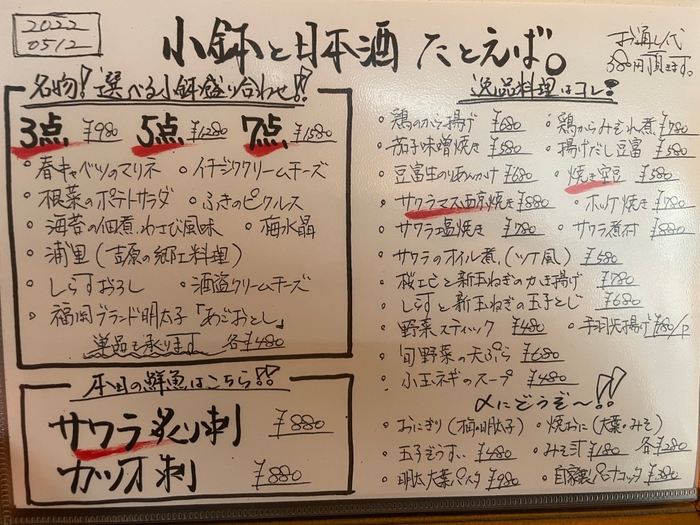 2022
0512
小鉢と日本酒 たとえば。
お通し代
380円頂きます。
名物!選べる小鉢盛り合わせ!!
3点 ¥980 5点 ¥1280 7点 ¥1580
・春キャベツのマリネ ・イチジククリームチーズ
・根菜のポテトサラダ ・ふきのピクルス
・海苔の佃煮、わさび風味 ・梅水晶
・浦里(吉原の郷土料理)
・しらすおろし ・酒盗クリームチーズ
・福岡ブランド明太子「あごおとし」
単品も承ります 各¥480
本日の鮮魚はこちら!!
サワラ炙り刺 ¥880
カツオ刺 ¥880
逸品料理はコレ!
・鶏のから揚げ ¥680 ・鶏からみぞれ煮 ¥780
・茄子味噌焼き ¥580 ・揚げだし豆富 ¥580
・豆富生のりあんかけ ¥680 ・焼き空豆 ¥580
・サクラマス西京焼き ¥880 ・ホッケ焼き ¥780
・サワラ塩焼き ¥780 ・サワラ煮付 ¥880
・サワラのオイル煮(ツナ風) ¥580
・桜エビと新玉ねぎのかき揚げ ¥780
・しらすと新玉ねぎの玉子とじ ¥680
・野菜スティック ¥480 ・手羽先揚げ ¥180/P
・旬野菜の天ぷら ¥680
・小玉ネギのスープ ¥480
〆にどうぞ〜!!
・おにぎり(梅・明太子) ・焼おに(大葉・みそ)
各¥280
・玉子ぞうすい ¥480 ・みそ汁 ¥180
・明太大葉パスタ ¥980 ・自家製パンナコッタ ¥380